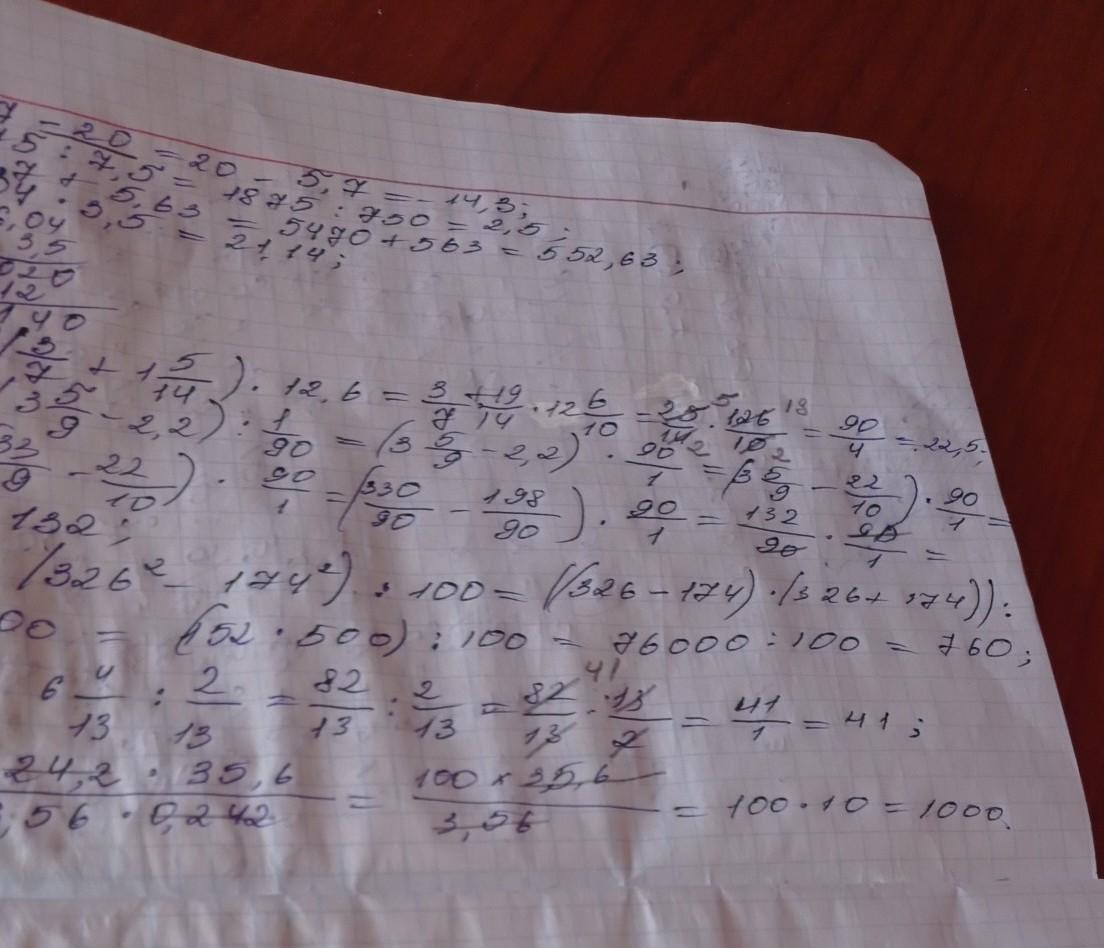 7 - 20 = 20 - 5,7 = -14,3;
: 7,5 = 1875 : 750 = 2,5;
+ 5,63 = 5470 + 563 = 552,63;
6,04 · 3,5 = 21,14;
3,5
1 40
(3/7 + 1 5/14) · 12,6 = 3/7 + 19/14 · 12 6/10 = 25/14 · 126/10 = 90/4 = 22,5;
(3 5/9 - 2,2) : 1/90 = (3 5/9 - 2,2) · 90/1 = (35/9 - 22/10) · 90/1 =
- 22/10) · 90/1 = (330/90 - 198/90) · 90/1 = 132/90 · 90/1 =
132;
(326² - 174²) : 100 = ((326 - 174) · (326 + 174)) :
00 = (152 · 500) : 100 = 76000 : 100 = 760;
6 4/13 : 2/13 = 82/13 : 2/13 = 82/13 · 13/2 = 41/1 = 41;
24,2 · 35,6 / ,56 · 0,242 = 100 × 35,6 / 3,56 = 100 · 10 = 1000.